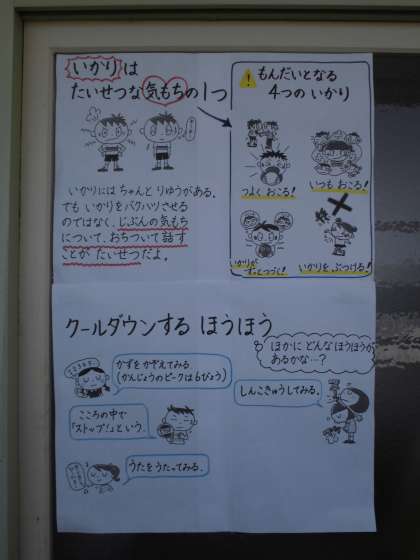 いかりは
たいせつな気もちの1つ
いかりには ちゃんと りゆうがある。
でも いかりをバクハツさせる
のではなく、じぶんの気もち
について、おちついて話す
ことが たいせつだよ。
もんだいとなる
4つの いかり
つよく おこる!
いつも おこる!
いかりが
ずっとつづく!
いかりを ぶつける!
クールダウンする ほうほう
かずを かぞえてみる
(かんじょうのピークは6びょう)
こころの中で
「ストップ!」という。
うたを うたってみる。
ほかに どんなほうほうが
あるかな…?
しんこきゅうしてみる。